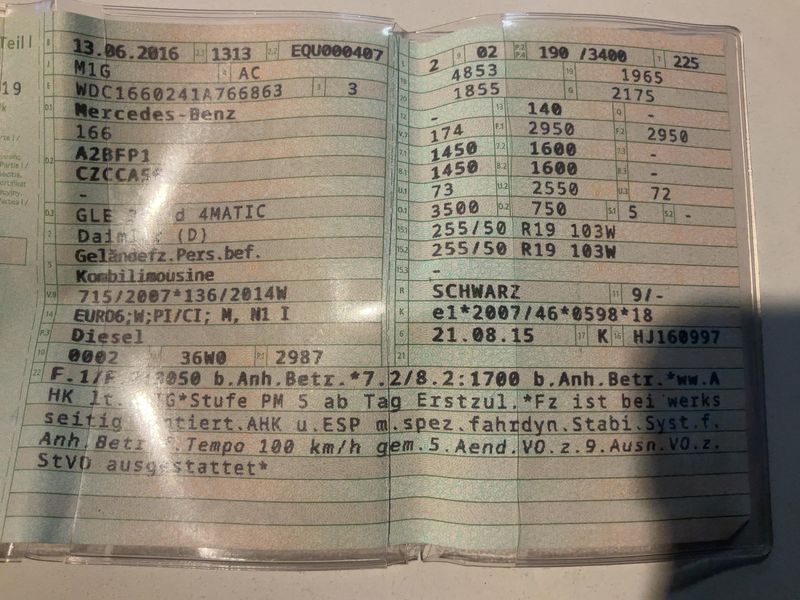 Teil I
B 13.06.2016 2.1 1313 2.2 EQU000407
J M1G 4 AC
19
E WDC1660241A766863 3 3
D.1 Mercedes-Benz
166
D.2 A2BFP1
-
D.3 GLE 4MATIC
2 Daimler (D)
5 Geländefz.Pers.bef.
Kombilimousine
V.9 715/2007*136/2014W
14 EURO6;W;PI/CI; M, N1 I
P.3 Diesel
10 0002 36W0 P.1 2987
L 2 9 02 P.2 P.4 190 /3400 T 225
18 4853 19 1965
20 1855 G 2175
12 - 13 140 Q -
V.7 174 F.1 2950 F.2 2950
7.1 1450 7.2 1600 7.3 -
8.1 1450 8.2 1600 8.3 -
U.1 73 U.2 2550 U.3 72
O.1 3500 O.2 750 S.1 5 S.2 -
15.1 255/50 R19 103W
15.2 255/50 R19 103W
15.3 -
R SCHWARZ 11 9/-
K e1*2007/46*0598*18
6 21.08.15 17 K 16 HJ160997
21
22 b.Anh.Betr.*7.2/8.2:1700 b.Anh.Betr.*ww.A
HK lt. *Stufe PM 5 ab Tag Erstzul.*Fz ist bei werks
seitig montiert.AHK u.ESP m.spez.fahrdyn.Stabi.Syst.f.
Anh.Betr. f.Tempo 100 km/h gem.5.Aend.VO.z.9.Ausn.VO.z.
StVO ausgestattet*